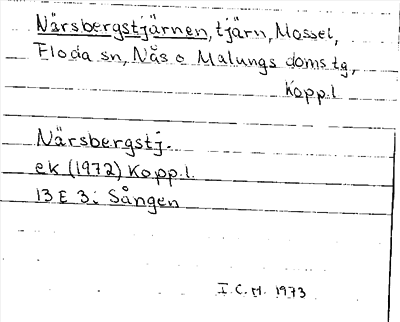 Närsbergstjärnen, tjärn, Mossel,
Floda sn, Nås o Malungs doms tg,
Kopp.l
Närsbergstj.
ek (1972) Kopp.l.
13 E 3i Sången
I.C.M. 1973